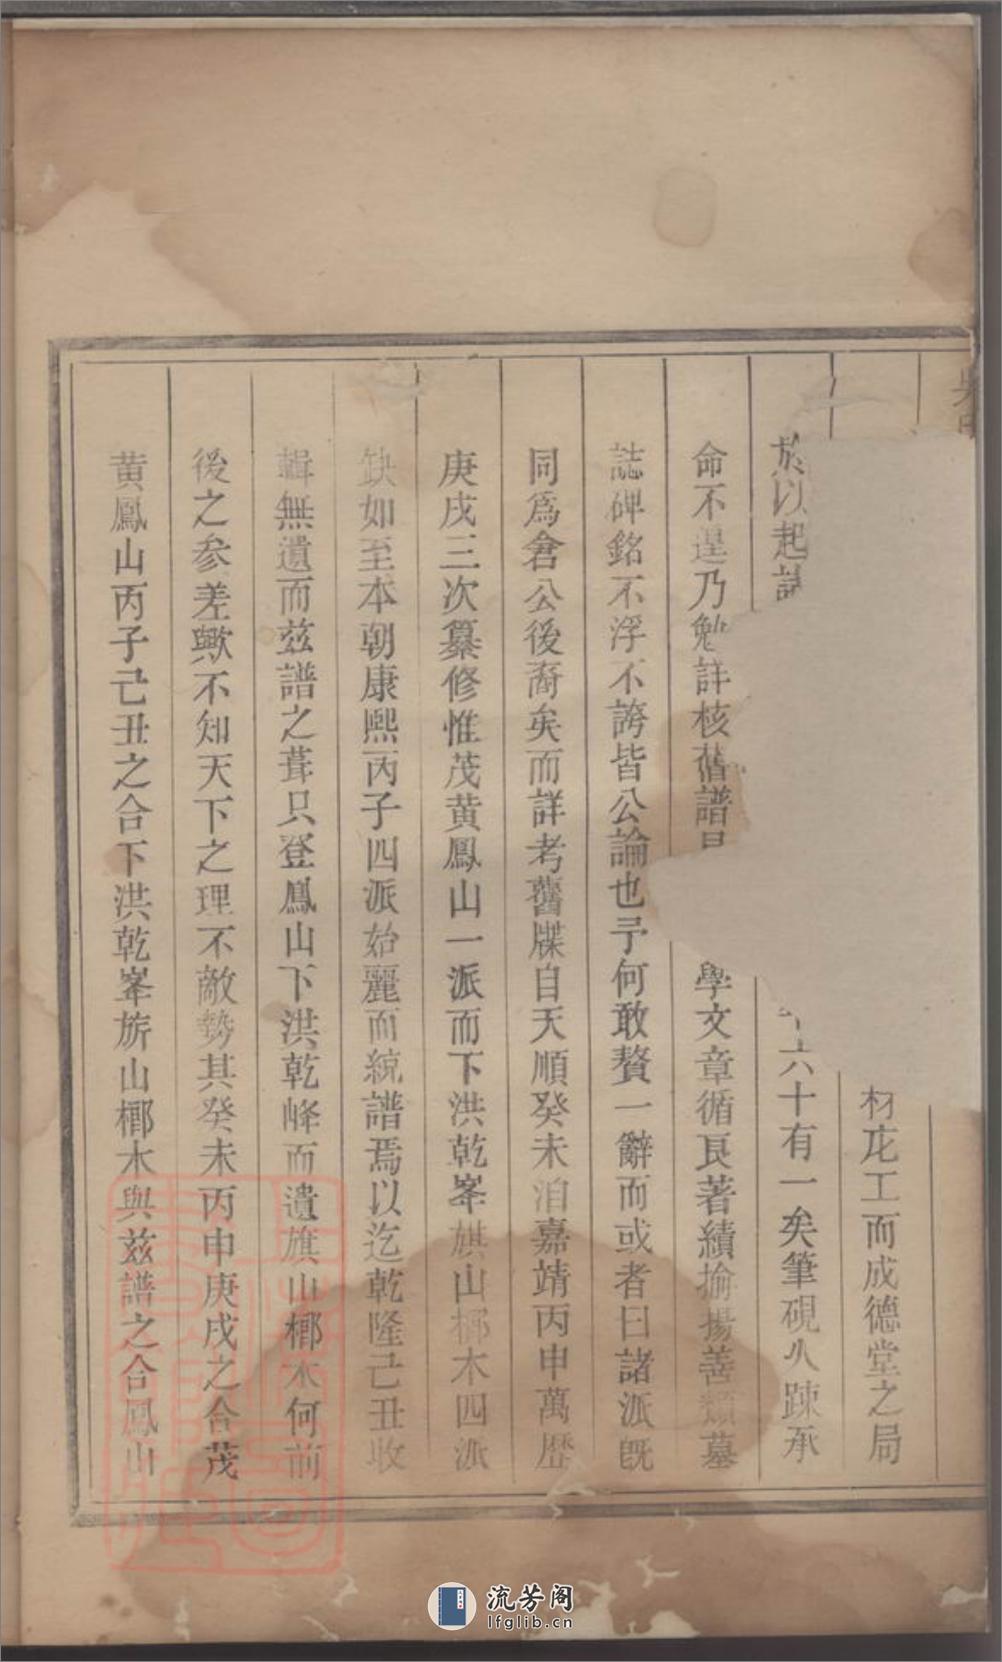 材庀工而成德堂之局
於以起 六十有一矣筆硯久踈承
命不遑乃勉詳核舊譜 學文章循良著績揄揚善類墓
誌碑銘不浮不誇皆公論也予何敢贅一辭而或者曰諸派既
同爲倉公後裔矣而詳考舊牒自天順癸未洎嘉靖丙申萬歷
庚戌三次纂修惟茂黄鳳山一派而下洪乾峯旗山槨木四派
缺如至本朝康熙丙子四派始麗而統譜焉以迄乾隆己丑收
輯無遺而兹譜之葺只登鳳山下洪乾峰而遺旗山槨木何前
後之参差歟不知天下之理不敵勢其癸未丙申庚戌之合茂
黄鳳山丙子己丑之合下洪乾峯旂山槨木與兹譜之合鳳山
流芳阁
lfglib.cn